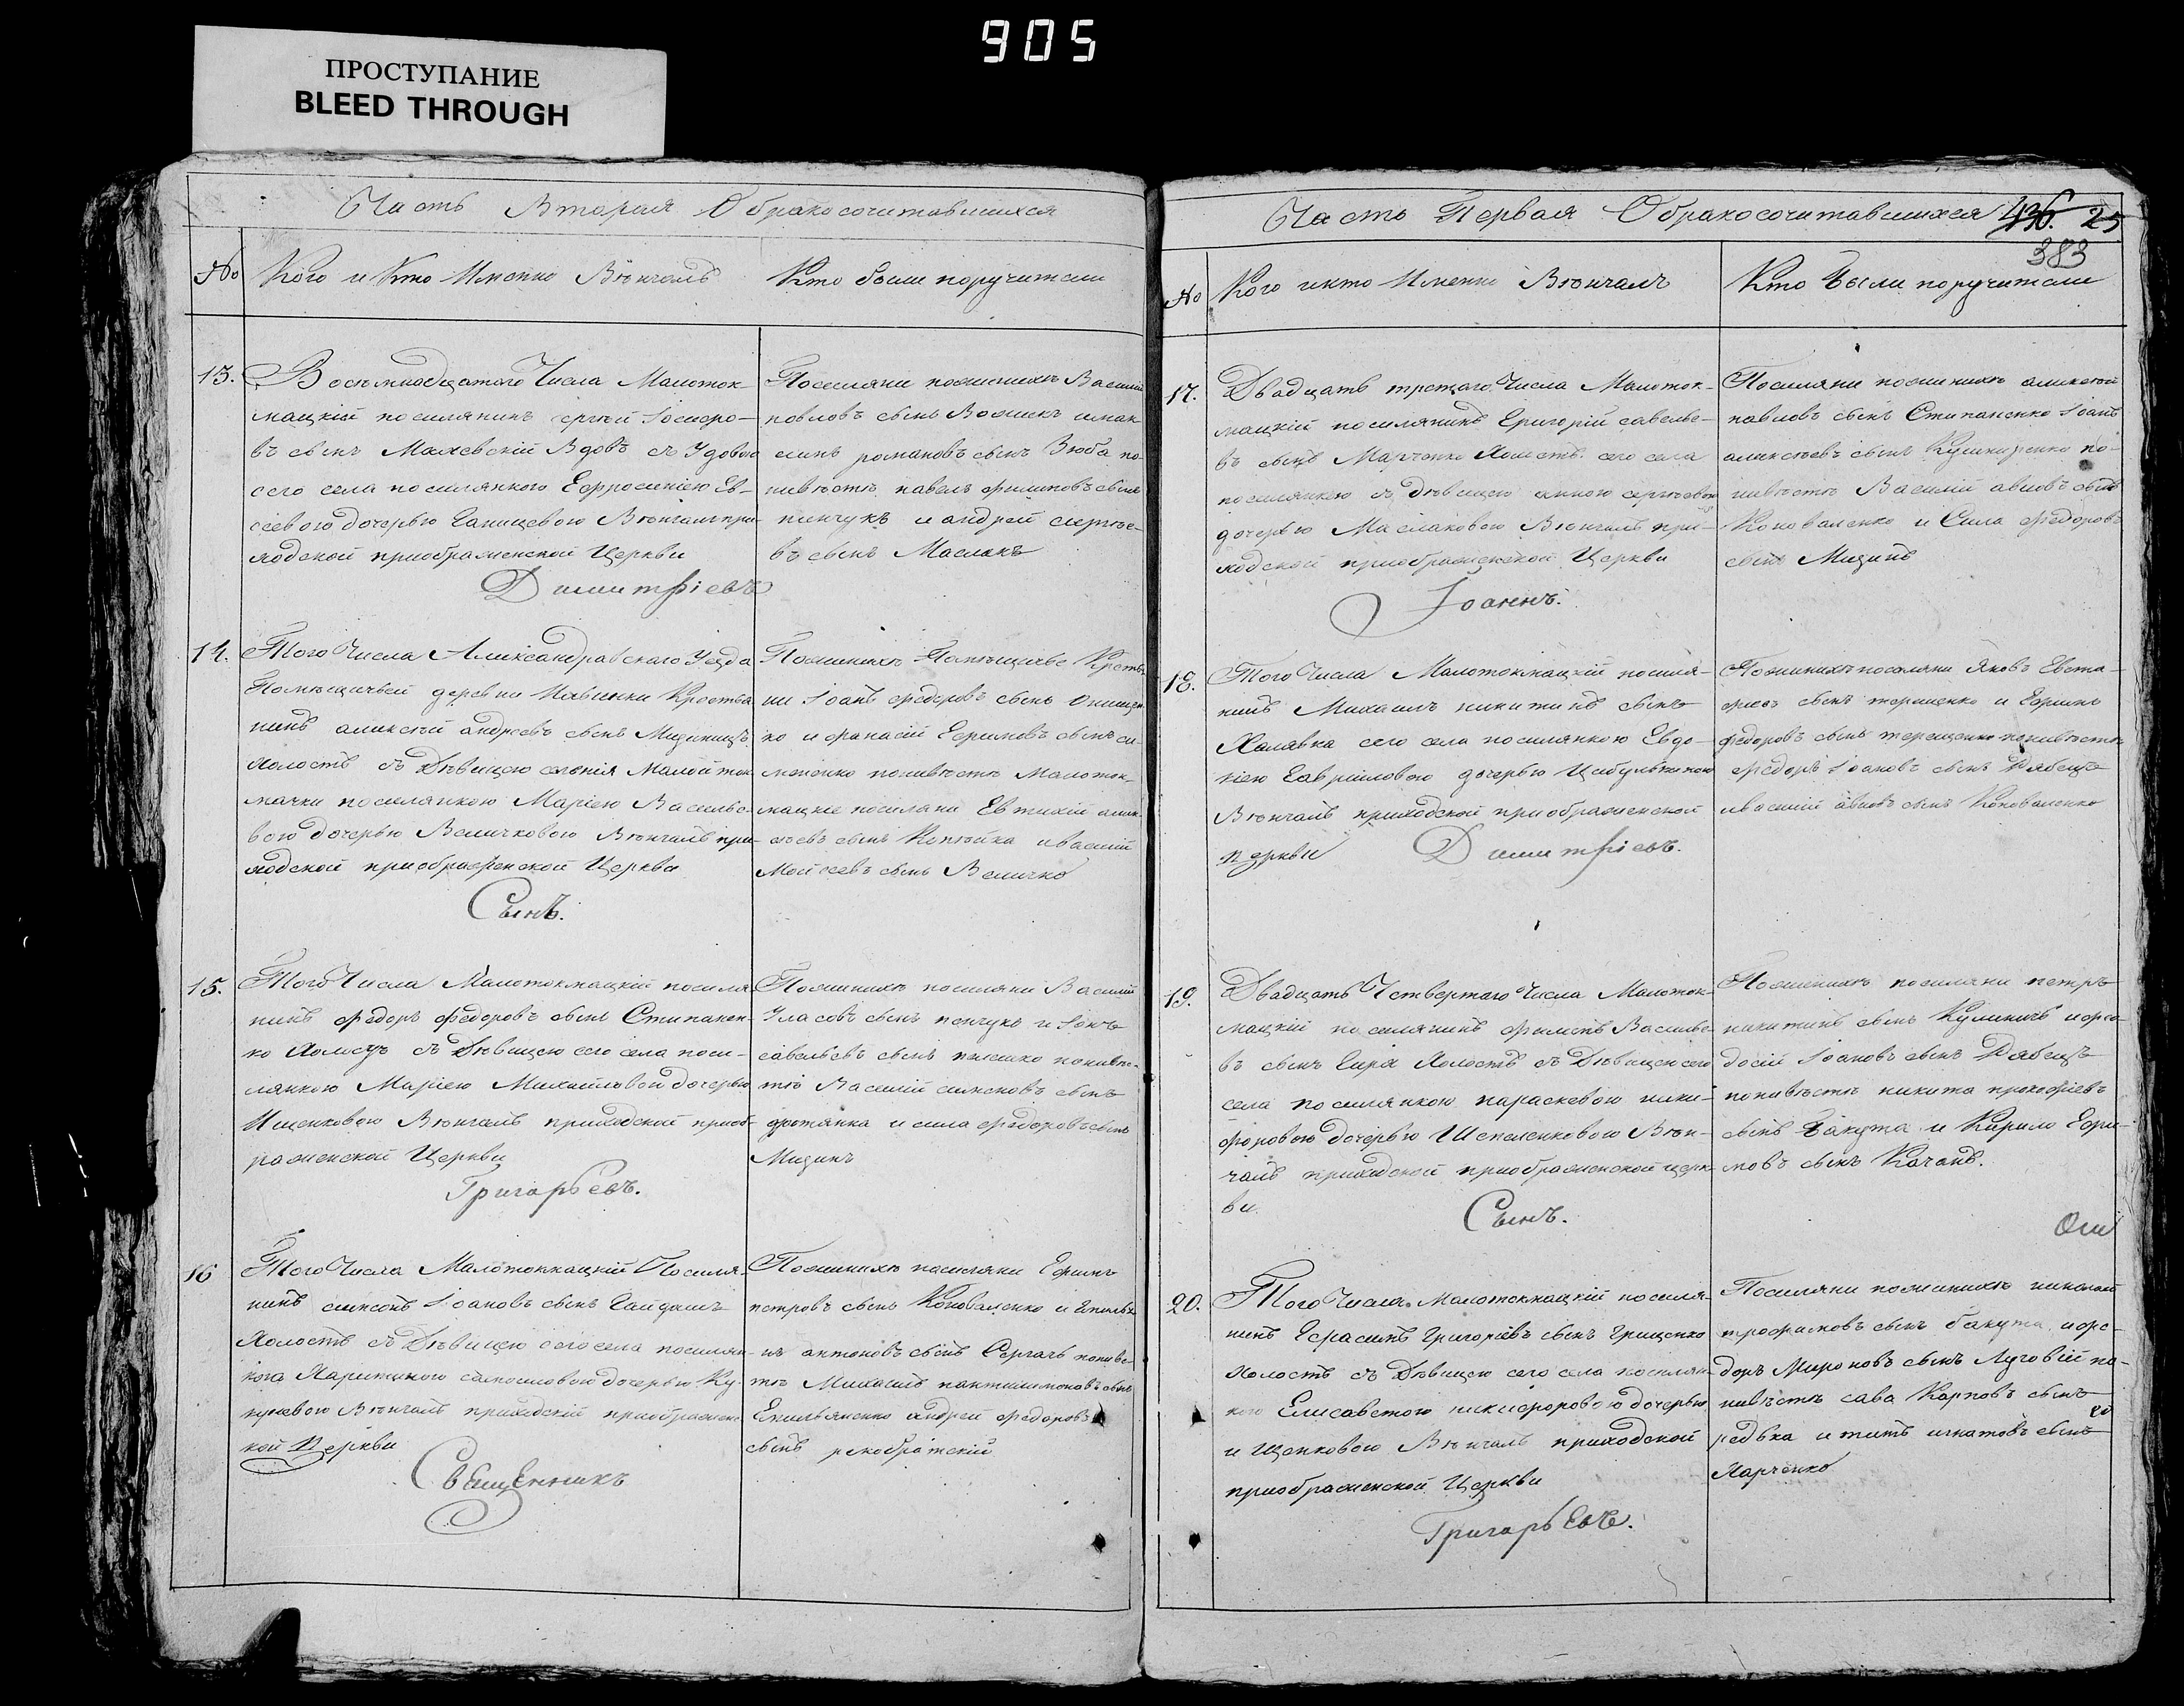 905
ПРОСТУПАНИЕ
BLEED THROUGH
Часть Вторая О бракосочитавшихся
№ Кого и Кто Именно Вѣнчалъ Кто были поручители
13. Восемнадцатаго Числа Малоток-
мацкій поселянинъ
въ сынъ Маяевскій Вдовъ съ Удовою
сего села поселянкою Ефросиніею Ев-
сеевою дочерью Ганищевою Вѣнчалъ при-
ходской приображенской Церкви
Димитріевъ
Поселяни пожинихъ Василий
павловъ сынъ
романовъ сынъ Зюба по
нивѣстѣ павелъ филиповъ сынъ
пинчукъ и андрей сергѣе-
въ сынъ Маслакъ
14. Того Числа Александравскаго Уезда
Помѣщичьей деревни Крестья
нинъ аликсѣй андреевъ сынъ
Холостъ съ Дѣвицею селенія Малой ток
мачки поселянкою Маріею Василье-
вою дочерью Величковою Вѣнчалъ при-
ходской приображенской Церкви
Сынъ.
Пожинихъ Помѣщичье Крестья
ни Іоанъ федоровъ сынъ Онищен
ко и афанасій Ефимовъ сынъ си-
мененко понивѣстѣ Малоток-
мацкие поселяни Евтихий алик
сѣевъ сынъ Копѣйка ивасилий
Мойсеевъ сынъ Величко
15. Того Числа Малотокмацкій поселя
нинъ федоръ федоровъ сынъ Стипанен-
ко Холостъ съ Дѣвицею сего села посе-
лянкою Маріею Михайловой дочерью
Ищенковою Вѣнчалъ приходской приоб-
раженской Церкви
Григарьевъ.
Пожинихѣ поселяни Василий
Уласовъ сынъ пенчукъ и
савельевъ сынъ понивѣс-
тѣ Василий сименовъ сынъ
фотянка и сила федоровъ сынъ
Мизинъ
16 Того Числа Малотокмацкий Поселя-
нинъ симеонъ Іоановъ сынъ Гайдашъ
Холостъ съ Дѣвицею сего села поселян-
кою Харитиною дочерью
Вѣнчалъ приходскій приображенс
кой Церкви
Священникъ
Пожинихѣ поселяни Ефимъ
петровъ сынъ Коноваленко и
антоновъ сынъ Сергачъ понивѣс
тѣ Михаилъ пантилимоновъ сынъ
Емильяненко андрей федоровъ
сынъ
Часть Первая О бракосочитавшихся 436. 25
383
№ Кого икто Именно Вѣнчалъ Кто были поручители
17. Двадцать третяго Числа Малоток-
мацкій поселянинъ Григорій савелье-
въ сынъ Марченко Холостъ сего села
поселянкою съ дѣвицею анною сергѣевою
дочерью Маслаковою Вѣнчалъ при-
ходской приображенской Церкви
Іоаннъ.
Поселяни пожинихѣ аликсѣй
павловъ сынъ Стипаненко Іоанъ
аликсѣевъ сынъ Кушниренко по-
нивѣстѣ Василій авиовъ сынъ
Коноваленко и Сила федоровъ
сынъ Мизинъ
18. Того Числа Малотокмацкій поселя-
нинъ Михаилъ никитинъ сынъ
Халявка сего села поселянкою Евдо-
кіею Гавріиловою дочерью Цибулькиною
Вѣнчалъ приходской приображенской
церкви Димитріевъ.
Пожинихѣ поселяни Яковъ Евста-
фиевъ сынъ терещенко и Ефимъ
федоровъ сынъ терещенко понивѣстѣ
федоръ Іоановъ сынъ Рябецъ
ивасилий авиовъ сынъ Коноваленко
19. Двадцать Четвертаго Числа Малоток-
мацкій поселянинъ филипъ Василье-
въ сынъ Гиря Холостъ съ Дѣвицеи сего
села поселянкою параскевою ники-
форовою дочерью Шепеленковою Вѣн-
чалъ приходской приображенской церк-
ви.
Сынъ.
Пожинихѣ поселяни петръ
никитинъ сынъ Кулиничъ ифео-
досій Іоановъ сынъ Рябецъ
понивѣстѣ никита прокофіевъ
сынъ Бакута и Кирило Ефи-
мовъ сынъ Качанъ.
20. Того Числа Малотокмацкій поселя-
нинъ Герасимъ Григоріевъ сынъ Грищенко
холостъ съ Дѣвицею сего села поселян-
кою Елисаветою никифоровою дочерью
ищенковою Вѣнчалъ приходской
приображенской Церкви
Григарьевъ.
Поселяни пожинихѣ николай
трофимовъ сынъ бакута ифе-
доръ Мироновъ сынъ Луговій по-
нивѣстѣ сава Карповъ сынъ
редька и титъ игнатовъ сынъ
Харченко